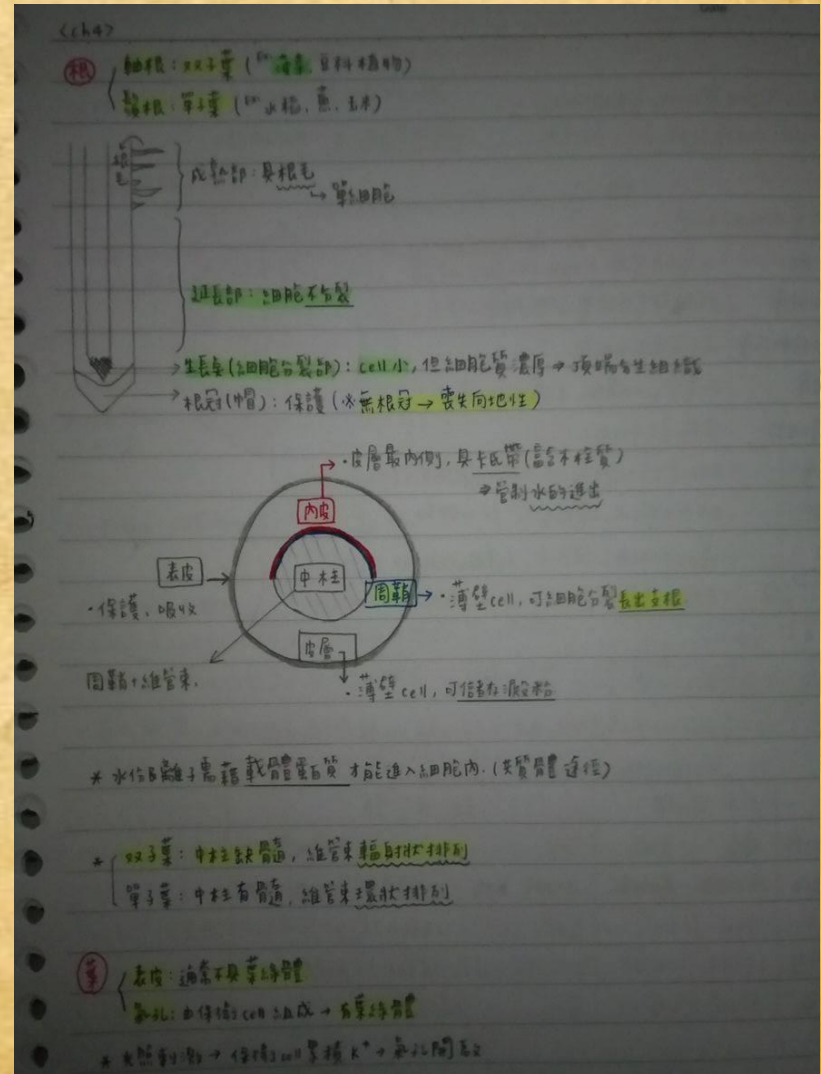 <ch4>
根 軸根：双子葉（Ex. 豆科植物）
鬚根：單子葉（Ex. 水稻、蔥、玉米）
根毛
成熟部：具根毛
↳ 單細胞
延長部：細胞不分裂
→ 生長點(細胞分裂部)：cell小，但細胞質濃厚 → 頂端分生組織
→ 根冠(帽)：保護（※無根冠 → 喪失向地性）
・皮層最內側，具卡氏帶(含木栓質)
⇒ 管制水的進出
內皮
表皮
中柱
周鞘 → ・薄壁cell，可細胞分裂長出支根
・保護、吸收
皮層
周鞘+維管束.
・薄壁cell，可儲存澱粉
* 水份及離子需藉載體蛋白質才能進入細胞內.（共質體途徑）
* 双子葉：中柱缺髓，維管束輻射狀排列
單子葉：中柱有髓，維管束環狀排列
葉 表皮：通常不具葉綠體
氣孔：由保衛cell組成 → 有葉綠體
* 光照刺激 → 保衛cell累積K⁺ → 氣孔開啟